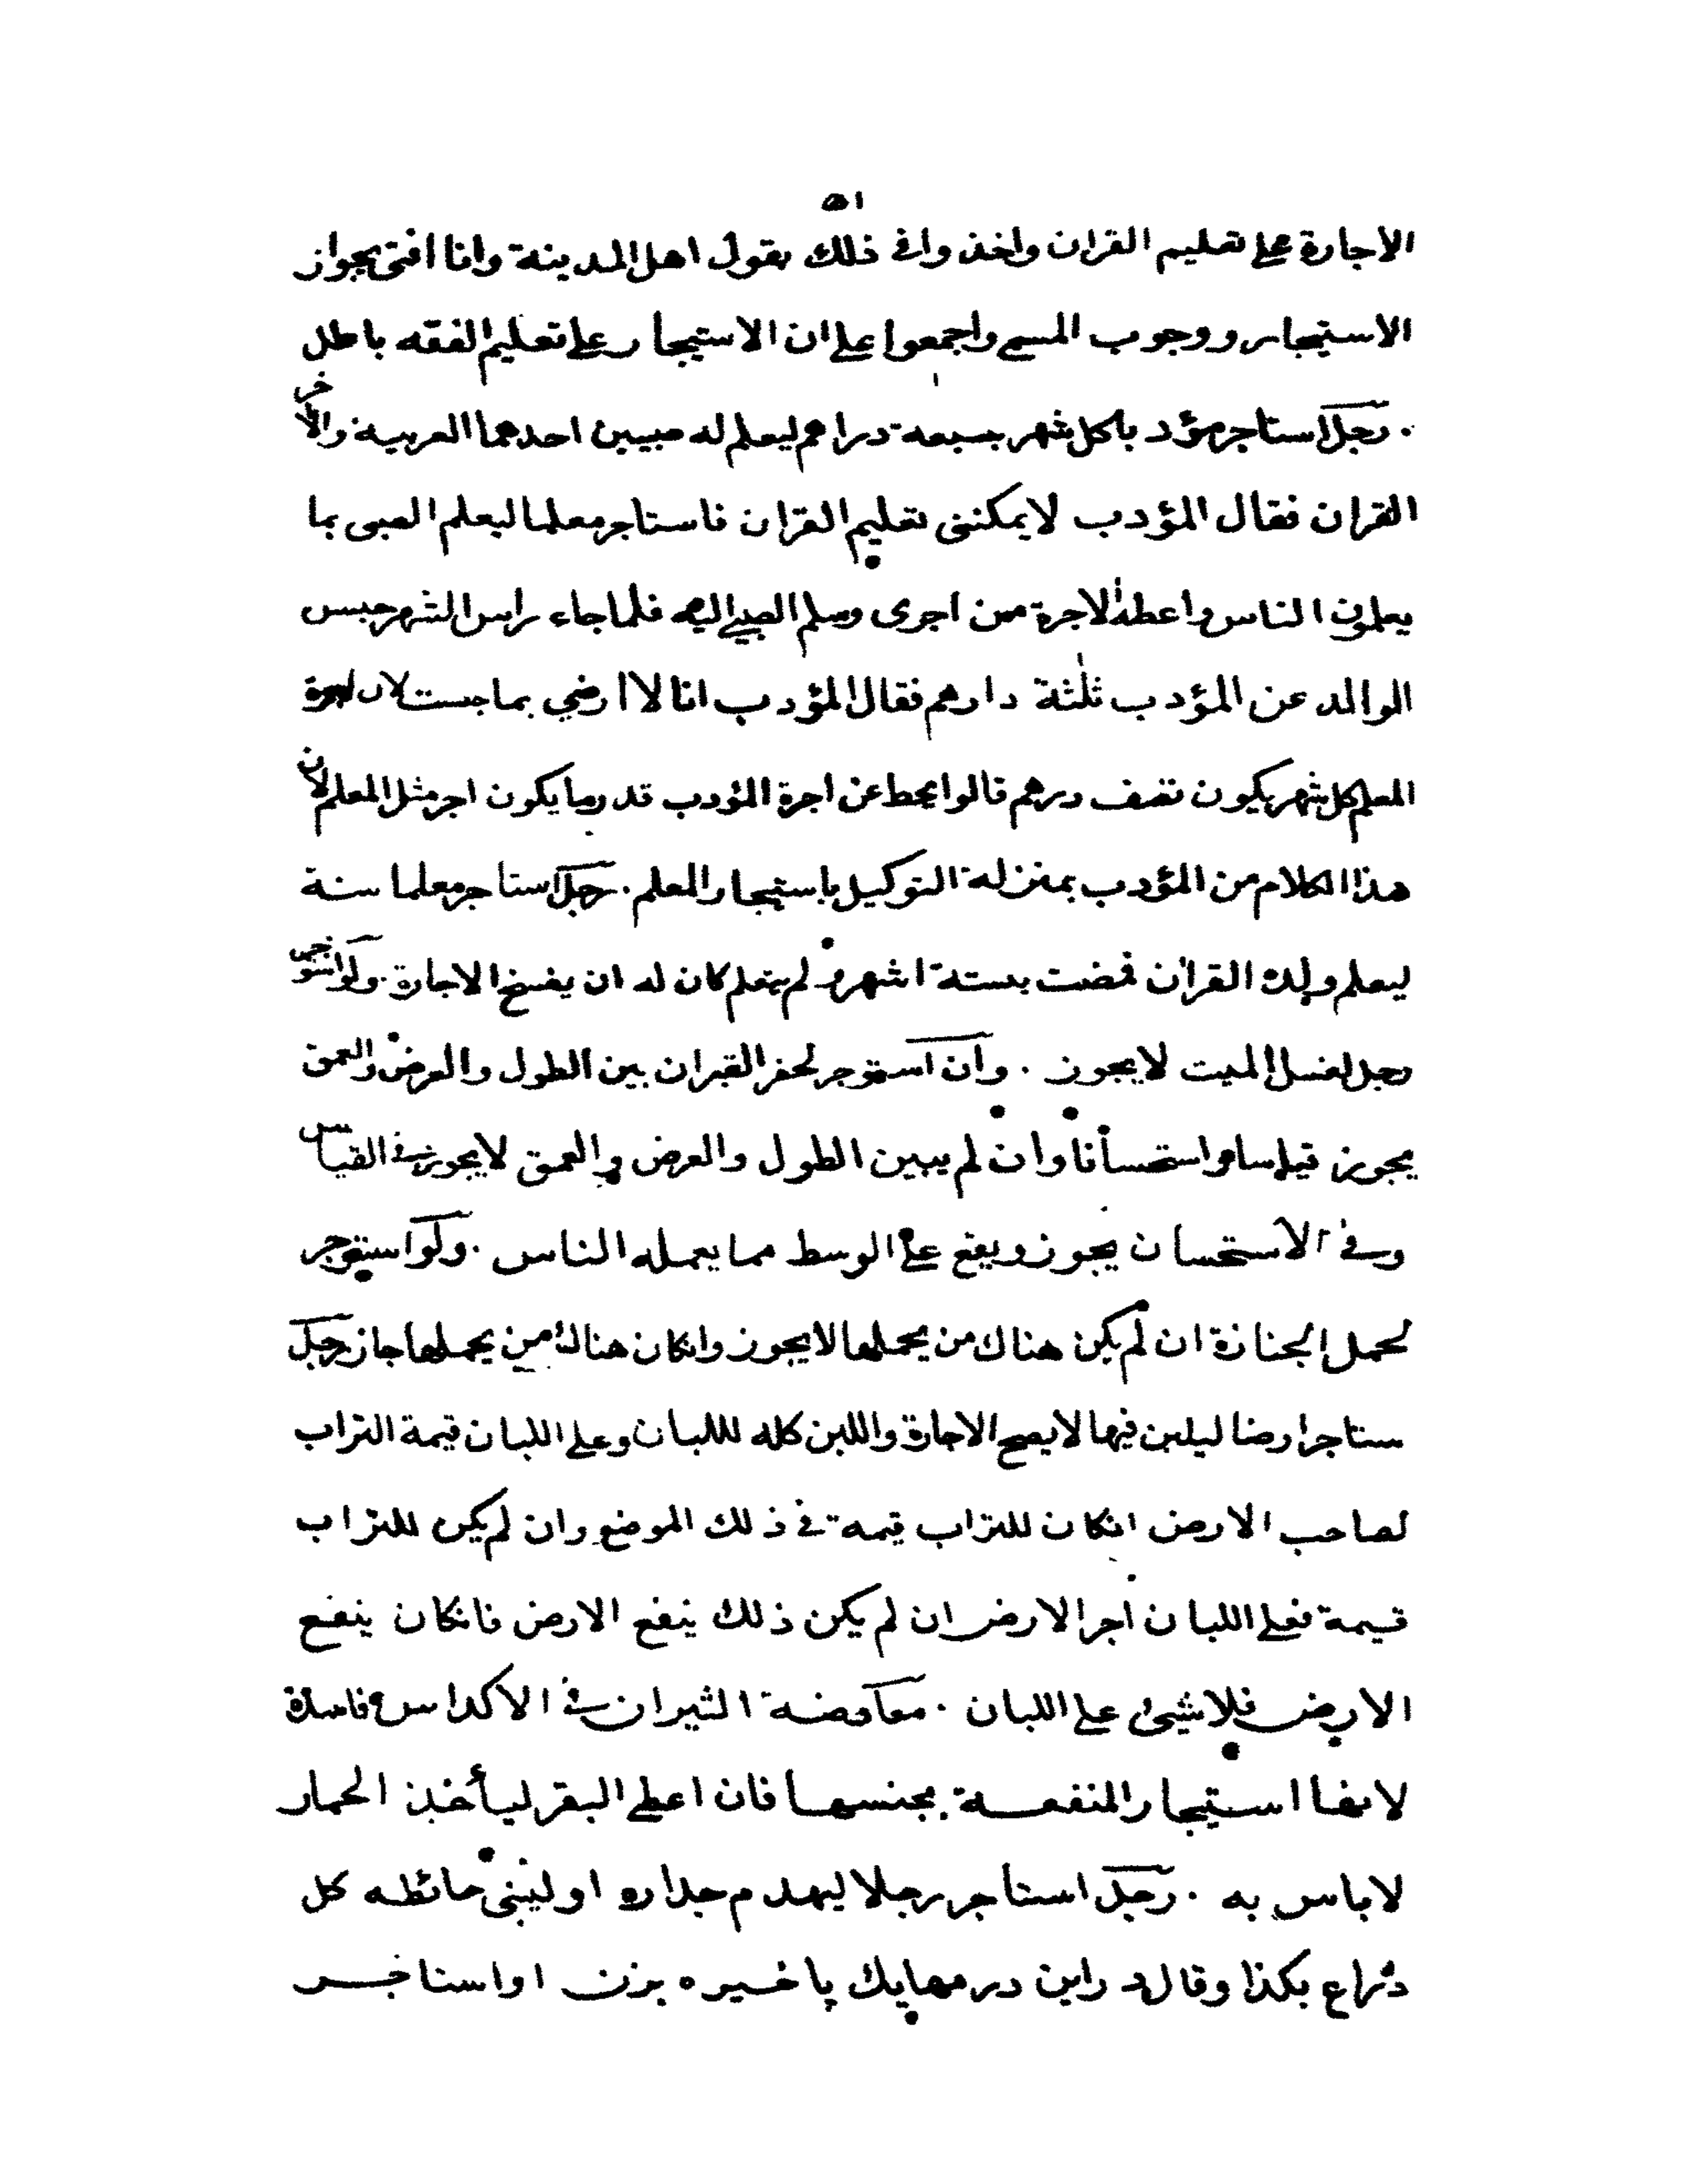 ٥١
الاجارة على تعليم القران واخذوا في ذلك بقول اهل المدينة وانا افتى بجواز
الاستيجار ووجوب المسمى واجمعوا على ان الاستيجار على تعليم الفقه باطل
. رجل استاجر مؤدبا كل شهر بسبعة دراهم ليعلم له صبيين احدهما العربية والاخر
القران فقال المؤدب لا يمكننى تعليم القران فاستاجر معلما ليعلم الصبى بما
يعلمون الناس واعطه الاجرة من اجرى وسلم الصبي اليه فلما جاء راس الشهر حبس
الوالد عن المؤدب ثلثة دارهم فقال المؤدب انا لا ارضي بما حبست لان اجرة
المعلم كل شهر يكون نصف درهم قالوا يحط عن اجرة المؤدب قدر ما يكون اجر مثل المعلم لان
هذا الكلام من المؤدب بمنزلة التوكيل باستيجار المعلم . رجل استاجر معلما سنة
ليعلم ولده القران فمضت بستة اشهر ولم يتعلم كان له ان يفسخ الاجارة . ولو استوجر
رجل لغسل الميت لا يجوز . وان استوجر لحفر القبر ان بين الطول والعرض والعمق
يجوز قياسا واستحسانا وان لم يبين الطول والعرض والعمق لا يجوز في القياس
وفي الاستحسان يجوز ويقع على الوسط مما يعمله الناس . ولو استوجر
لحمل الجنازة ان لم يكن هناك من يحملها لا يجوز وانكان هناك من يحملها جاز رجل
ستاجر ارضا ليلبن فيها لا يصح الاجارة واللبن كله لللبان وعلى اللبان قيمة التراب
لصاحب الارض انكان للتراب قيمة في ذلك الموضع وان لم يكن للتراب
قيمة فعلى اللبان اجر الارض ان لم يكن ذلك ينفع الارض فانكان ينفع
الارض فلا شيئ على اللبان . معاوضة الثيران في الاكداس فاسدة
لانها استيجار المنفعة بجنسها فان اعطى البقر ليأخذ الحمار
لا باس به . رجل استاجر رجلا ليهدم جداره او ليبنى حائطه كل
ذراع بكذا وقال د راين در مهايك پاخسيره بزن او استاجر